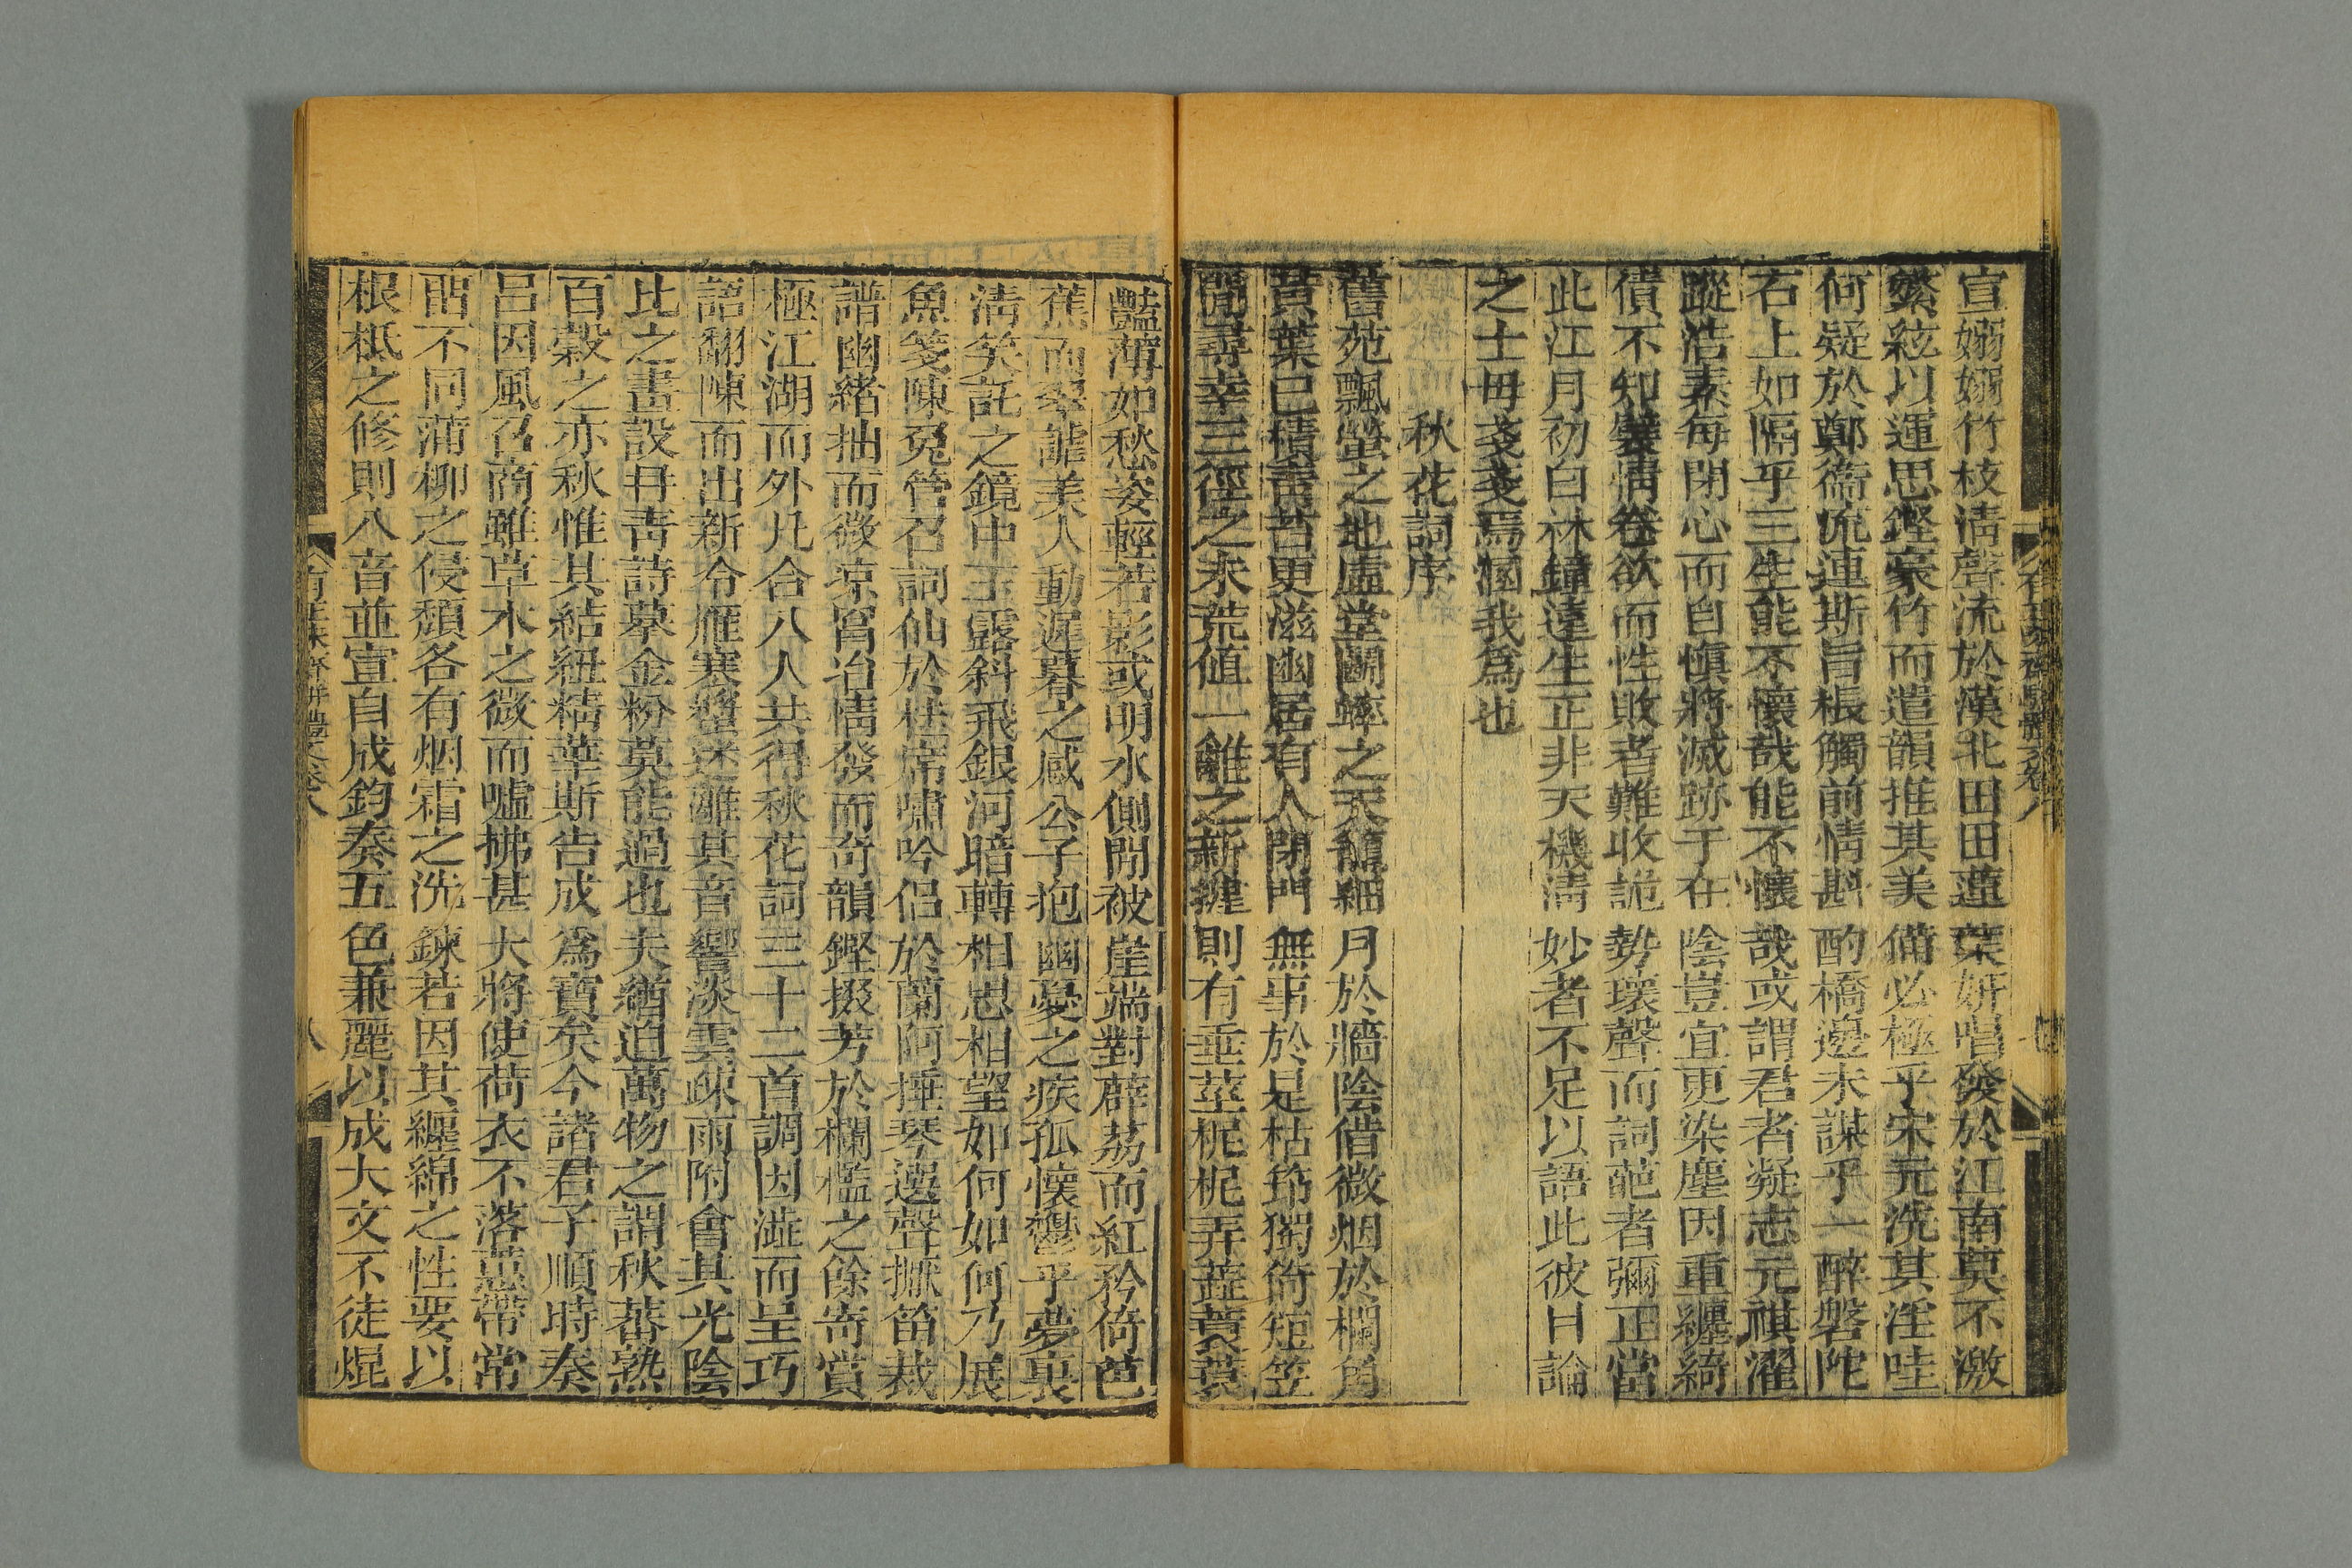 宣嫋嫋竹枝清聲流於漢北田田蓮葉妍唱發於江南莫不激
繁絃以運思鏗豪竹而遣韻推其美備必極乎宋元洗其淫哇
何疑於鄭衞流連斯旨棖觸前情斟酌橋邊未謀乎一醉磐陀
石上如隔乎三生能不懷哉能不懷哉或謂君者凝志元祺濯
蹤浩素每閉心而自愼將滅跡于在陰豈宜更染塵因重纏綺
債不知襞情卷欲而性敗者難收詭勢壞聲而詞葩者彌正當
此江月初白林鐘遠生正非天機淸妙者不足以語此彼日論
之士毋戔戔焉溷我爲也
秋花詞序
舊苑飄螢之地虛堂關蟀之天鬅細月於牆陰借微烟於欄角
黃葉已積靑苔更滋幽居有人閉門無事於是枯筇獨倚短笠
閒尋幸三徑之未荒値一雝之新捷則有垂莖柅柅弄蕋蓑蓑
豔薄如愁姿輕若影或明水側開被崖端對薜荔而紅矜倚芭
蕉而翠誰美人動遲暮之感公子抱幽憂之疾孤懷鬱乎夢裏
淸笑託之鏡中玉露斜飛銀河暗轉相思相望如何如何乃展
魚箋陳兎管召詞仙於桂席嘯吟侶於蘭阿捶琴選聲擫笛裁
譜幽緒抽而微凉胃冶情發而奇韻鏗掇芳於欄檻之餘寄賞
極江湖而外凡合八人共得秋花詞三十二首調因澁而呈巧
語翻陳而出新令雁寒蛩迷離其音響淡雲疎雨附會其光陰
比之畫設丹靑詩摹金粉莫能過也夫緧迫萬物之謂秋蕃熟
百穀之亦秋惟其結紐精華斯告成爲寶矣今諸君子順時奏
呂因風召商雖草木之微而噓拂甚大將使荷衣不落蕙帶常
䀈不同蒲柳之侵頹各有烟霜之洗鍊若因其纏綿之性要以
根柢之修則八音並宣自成鈞奏五色兼麗以成大文不徒焜
有正味齋駢體文卷八
七
有正味齋駢體文卷八
八